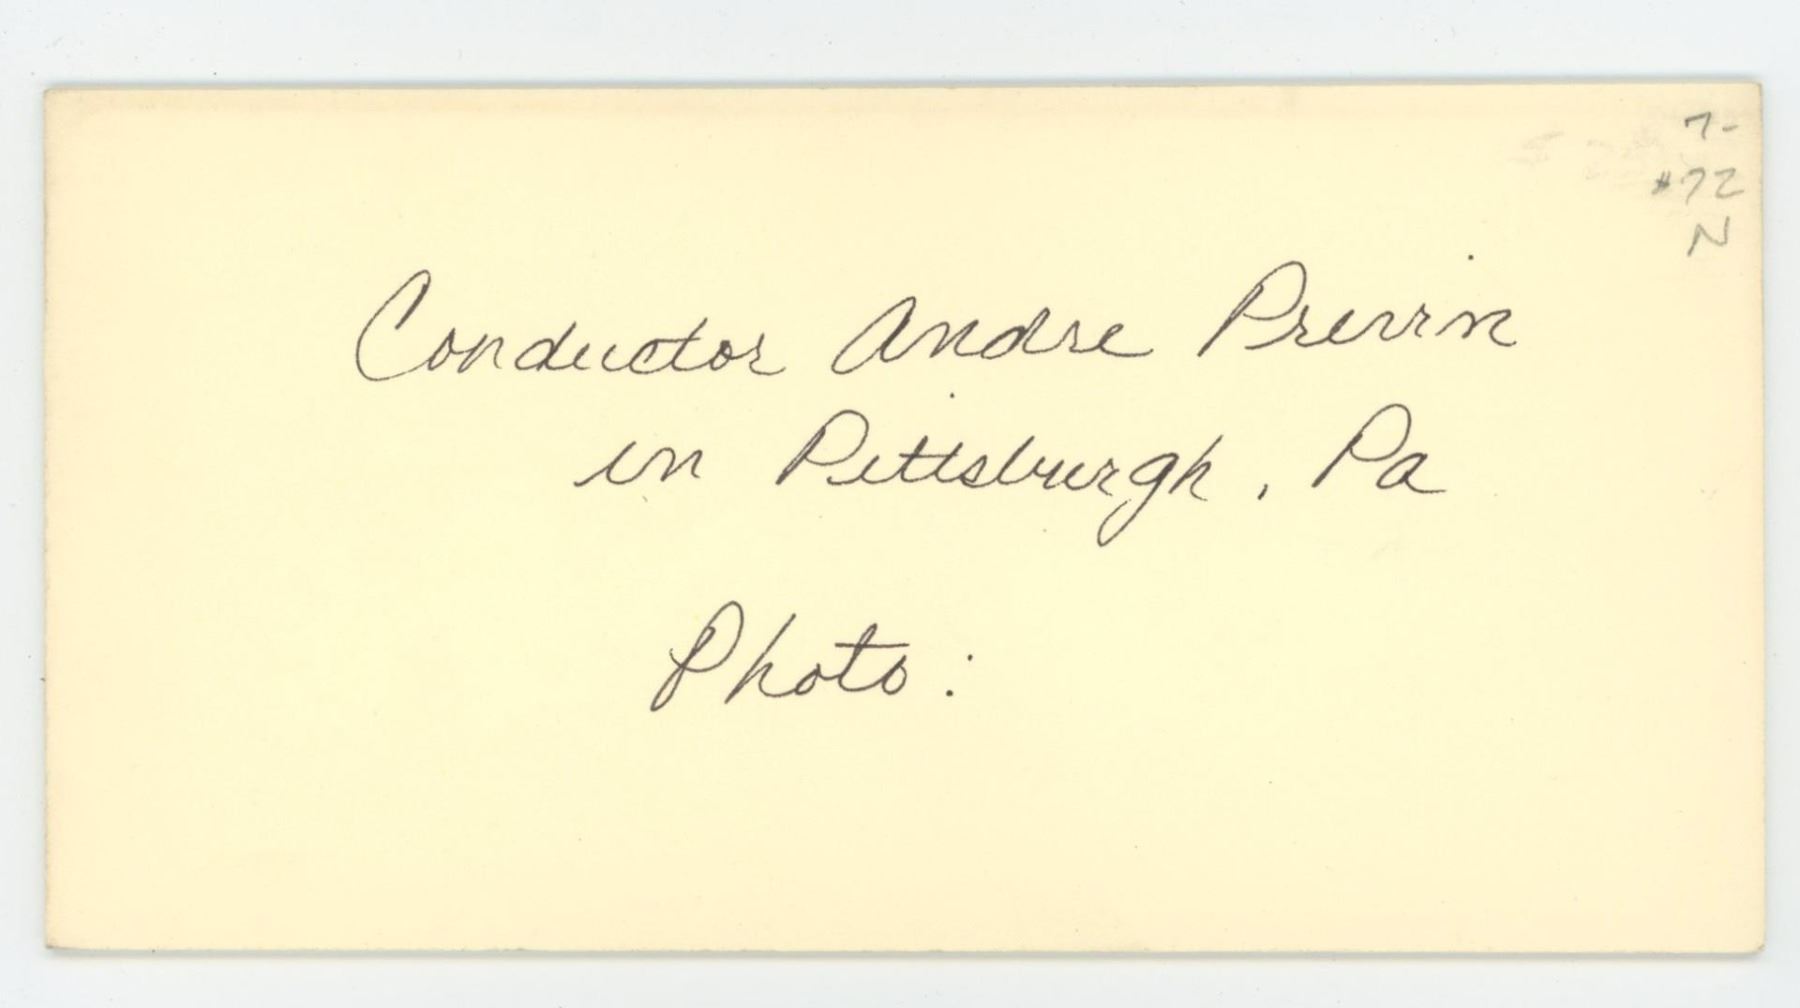 7-
#72
N
Conductor Andre Previn
in Pittsburgh, Pa
Photo: